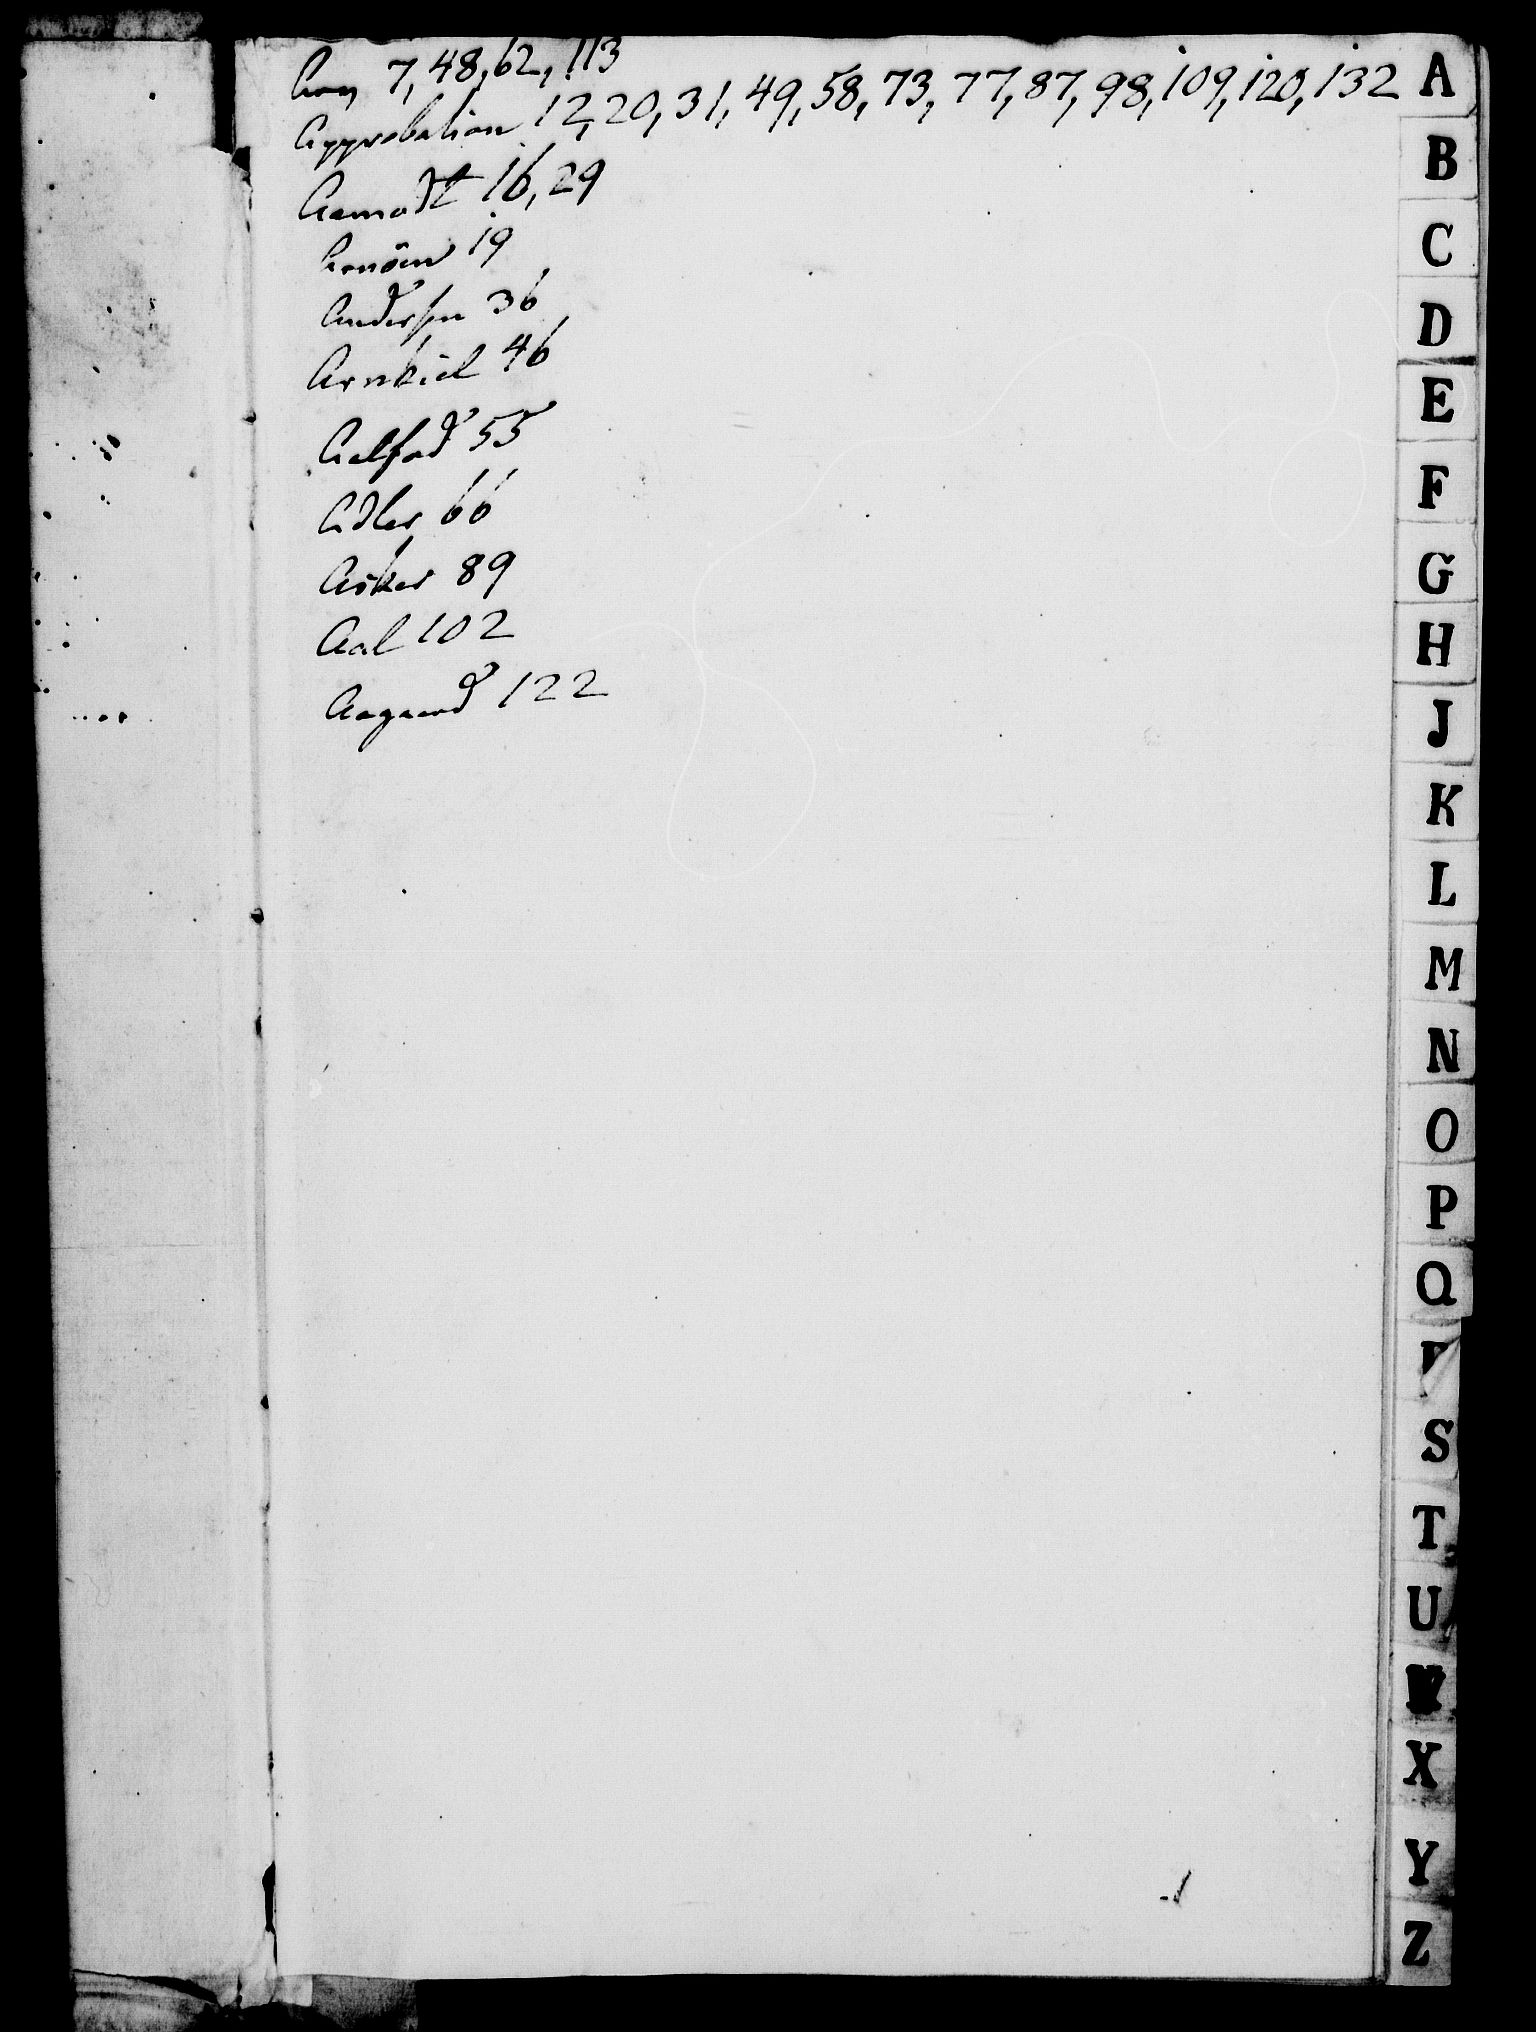 7, 48, 62, 113
Approbation 12, 20, 31, 49, 58, 73, 77, 87, 98, 109, 120, 132
Aamodt 16, 29
19
Andersen 36
Arnkiel 46
55
Adler 66
Asker 89
Aal 102
Aagaard 122
A
B
C
D
E
F
G
H
J
K
L
M
N
O
P
Q
S
T
U
X
Y
Z